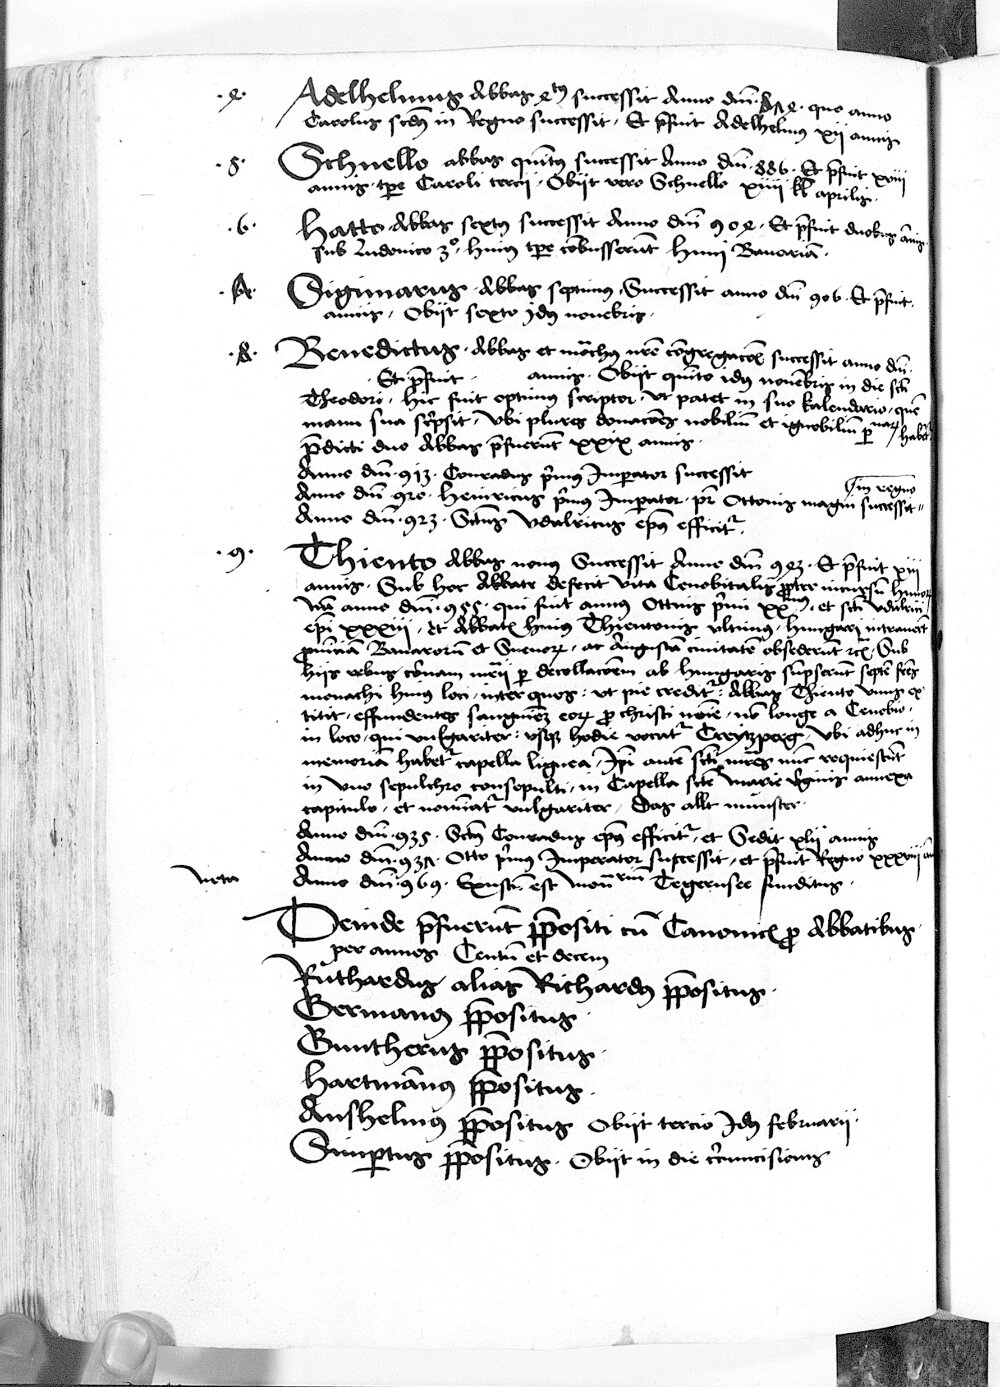 .4. Adelhelmus Abbas 4tus successit Anno dni. 874. quo anno
Carolus scds in Regno successit. Et pfuit Adelhelmus xii annis
.5. Schnello abbas quintus successit Anno dni. 886. Et pfuit xviii
annis. tpe Caroli tercii. Obijt vero Schnello xiiii kl aprilis.
.6. Hatto. Abbas sextus successit Anno dni 904. Et pfuit duobus annis
sub Ludouico 3°. huius tpe cobusserut Huni Bauariā.
.7. Sigimarus Abbas septimus Successit anno dni 906. Et pfuit.
annis. Obijt sexto jdus nouebris.
.8. Benedictus. Abbas et mochus nre cogregacois successit anno dni.
. Et pfuit . annis. Obijt quito idus nouebris in die sci
Theodori. hic fuit optimus scriptor. Vt patet in suo kalendario. que
manu sua scripsit. Vbi plures donacoes nobiliu et ignobiliu
pdicti duo Abbas pfuerut xxix annis.
Anno dni. 913. Conradus primus Imperator successit
Anno dni 920. Heinricus primus Imperator. pr Ottonis magni successit
in regno
Anno dni. 923. Sctus Vdalricus epus efficitr.
.9. Thiento Abbas nonus Successit Anno dni 943. Et pfuit xiii
annis. Sub hoc Abbate defecit vita Cenobitalis propter incursu
anno dni. 955. qui fuit annus Ottonis primi xx. et scti Vdalrici
epi xxxiii. Et Abbatis huius Thientonis vltimus. Hungari intrauert
puinciā Bauaroru et Sueuor. ac Augustā ciuitate obsederut rc. Sub
hijs verbus p decollacoem ab hungaris supserut septe fres
monachi huius loci. inter quos. vt pie creditr. Abbas Thiento vnus ex
titit. effundentes sanguine eor p christi noie. no longe a Cenobio.
in loco. qui vulgariter. vsqz hodie vocatr Creytzperg. Vbi adhuc in
memoriā habetr capella lignea. Ipi aute scti mres nuc requiescut
in vno sepulchro consepulti. in Capella scte Marie vginis annexa
capitulo. et nominatr vulgariter. Das allt munster.
Anno dni. 935. Sctus Conradus epus efficitr. et Sedit xlii annis
Anno dni. 937. Otto primus Imperator successit. et pfuit Regno xxxviii an
Nota Anno dni. 969. Exusti est Tegernsee funditus.
Deinde pfuerut ppositi cu Canonicis p Abbatibus.
per annos Centu et decem
Ruthardus alias Richardus ppositus.
Germanus ppositus.
Guntherus ppositus.
Hartmānus ppositus.
Anshelmus ppositus Obijt tercio Jdus februarii.
Simptus ppositus. Obijt in die circumcisionis